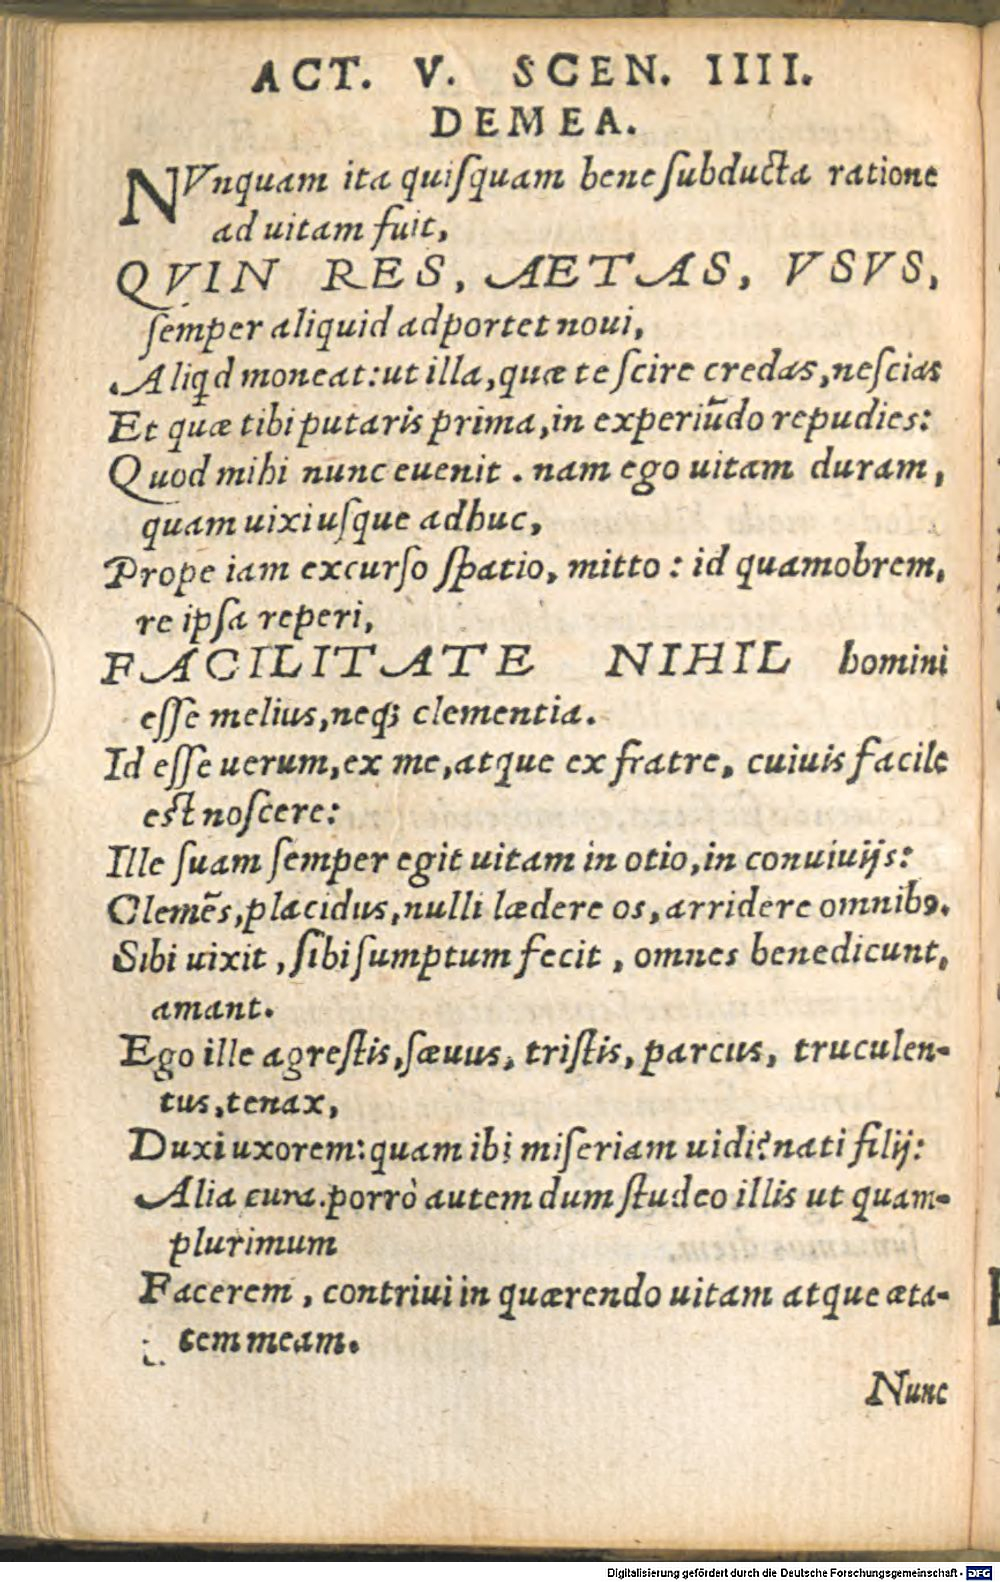 ACT. V. SCEN. IIII.
DEMEA.
NVnquam ita quiſquam bene ſubducta ratione
ad uitam fuit,
QVIN RES, AETAS, VSVS,
ſemper aliquid adportet noui,
Aliqd moneat: ut illa, quæ te ſcire credas, neſcias
Et quæ tibi putaris prima, in experiũdo repudies:
Quod mihi nunc euenit. nam ego uitam duram,
quam uixi uſque adhuc,
Prope iam excurſo ſpatio, mitto: id quamobrem,
re ipſa reperi,
FACILITATE NIHIL homini
eſſe melius, neq; clementia.
Id eſſe uerum, ex me, atque ex fratre, cuiuis facile
eſt noſcere:
Ille ſuam ſemper egit uitam in otio, in conuiuijs:
Clemẽs, placidus, nulli lædere os, arridere omnibꝯ.
Sibi uixit, ſibi ſumptum fecit, omnes benedicunt,
amant.
Ego ille agreſtis, ſæuus, triſtis, parcus, truculen-
tus, tenax,
Duxi uxorem: quam ibi miſeriam uidi? nati filij:
Alia cura. porrò autem dum ſtudeo illis ut quam-
plurimum
Facerem, contriui in quærendo uitam atque æta-
tem meam.
Nunc
Digitalisierung gefördert durch die Deutsche Forschungsgemeinschaft - DFG